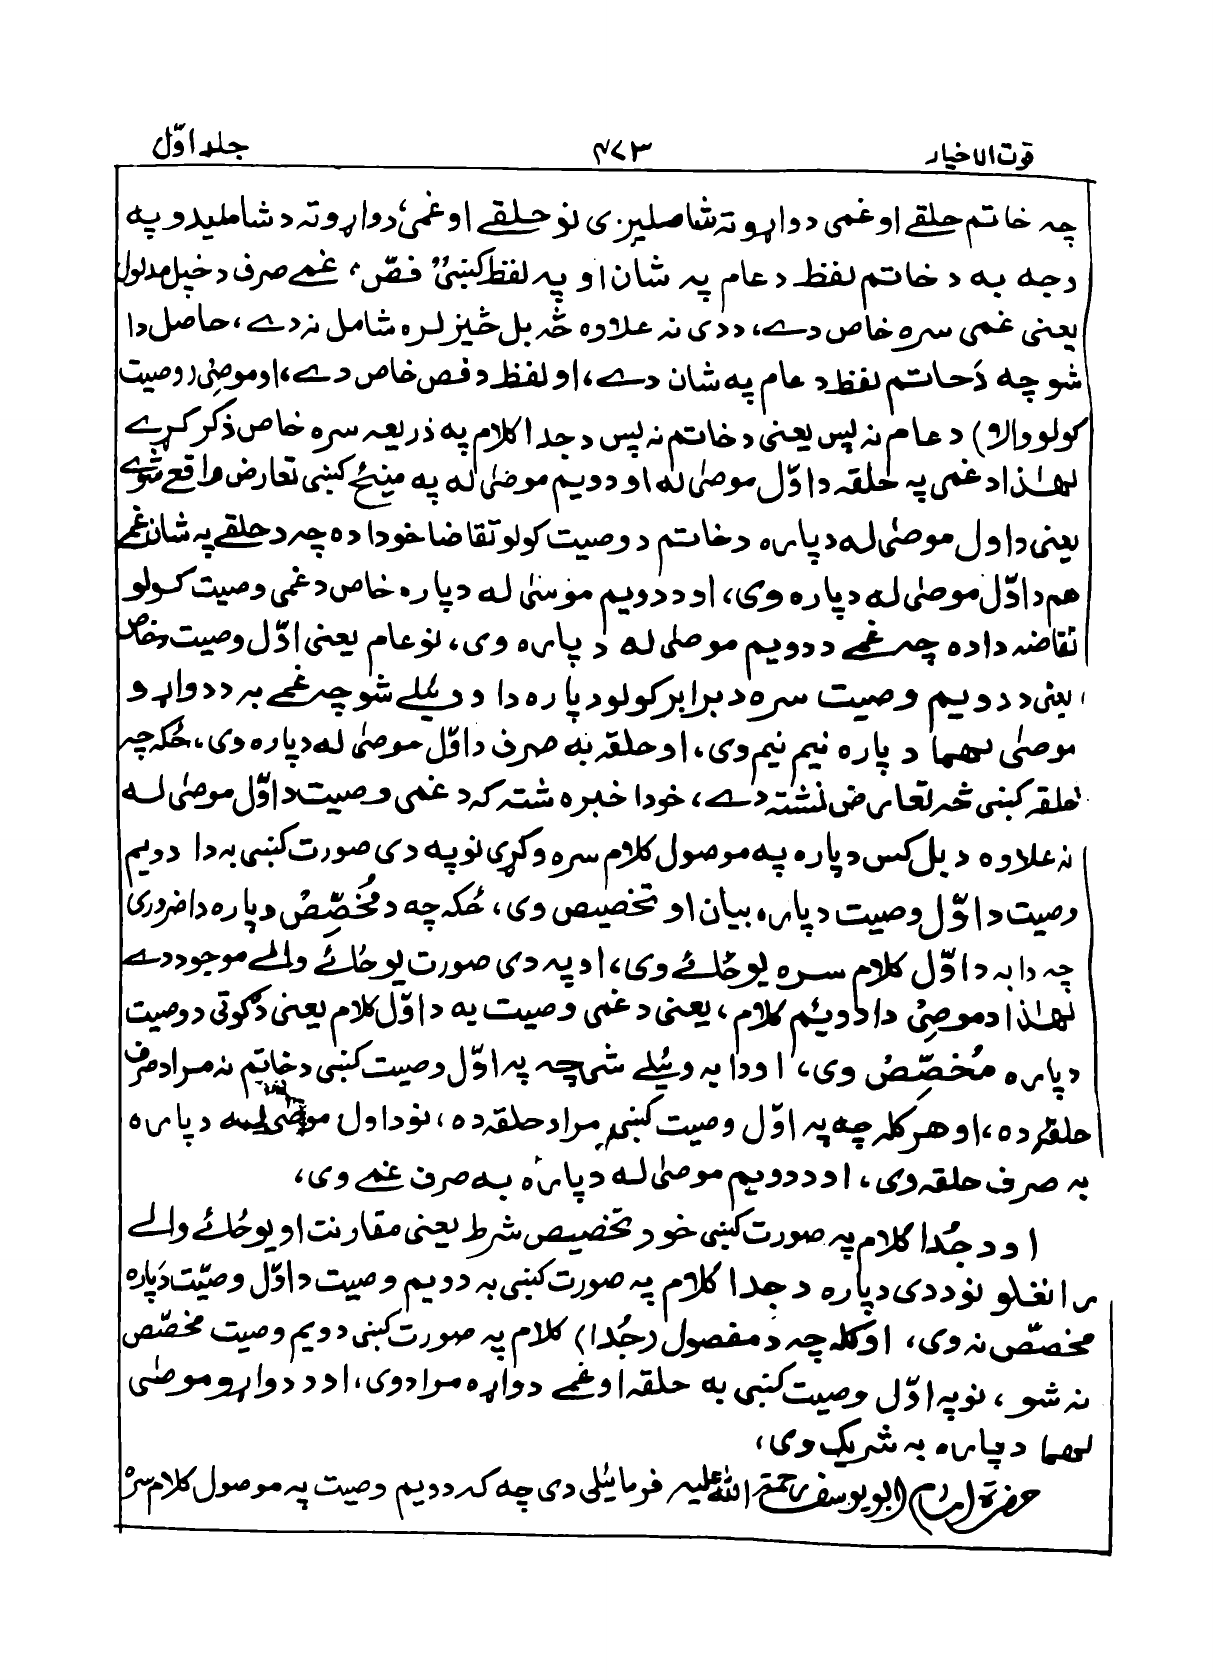 قوت الاخیار ۴۷۳ جلد اوّل
چہ خاتم حلقے او غمی دواړو تہ شاملیږی نو حلقے او غمی، دواړو تہ د شاملیدو پہ
وجہ بہ د خاتم لفظ د عام پہ شان او پہ لفظ کښی "فصّ، غمے صرف د خپل مدلول
یعنی غمی سرہ خاص دے، د دی نہ علاوہ څہ بل څیز لرہ شامل نہ دے، حاصل دا
شو چہ دَ خاتم لفظ د عام پہ شان دے، او لفظ د فص خاص دے، او موصِی (وصیت
کولو والا) د عام نہ پس یعنی د خاتم نہ پس د جدا کلام پہ ذریعہ سرہ خاص ذکر کړے
لھٰذا د غمی پہ حلقہ د اوّل موصیٰ لہ او دویم موصٰی لہ پہ مینځ کښی تعارض واقع شوے
یعنی د اول موصٰی لہ دپارہ د خاتم د وصیت کولو تقاضا خو دا دہ چہ د حلقے پہ شان غمے
ھم د اوّل موصیٰ لہ دپارہ وی، او د دویم موسیٰ لہ دپارہ خاص د غمی وصیت کولو
تقاضہ دا دہ چہ غمے د دویم موصلی لہ دپارہ وی، نو عام یعنی اوّل وصیت، خاص
یعنی د دویم وصیت سرہ د برابر کولو دپارہ دا وویٔلے شو چہ غمے بہ د دواړو
موصٰی لھما دپارہ نیم نیم وی، او حلقہ بہ صرف د اوّل موصیٰ لہ دپارہ وی، ځکہ چہ
حلقہ کښی څہ تعارض نشتہ دے، خو دا خبرہ شتہ کہ د غمی وصیت د اوّل موصیٰ لہ
نہ علاوہ د بل کس دپارہ پہ موصول کلام سرہ وکړی نو پہ دی صورت کښی بہ دا دویم
وصیت د اوّل وصیت دپارہ بیان او تخصیص وی، ځکہ چہ د مُخَصِّصْ دپارہ دا ضروری
چہ دا بہ د اوّل کلام سرہ یو ځائے وی، او پہ دی صورت یو ځائے والے موجود دے
لھٰذا د موصِیْ دا دویٔم کلام، یعنی د غمی وصیت بہ د اوّل کلام یعنی دَ ګوتی د وصیت
دپارہ مُخَصِّصْ وی، او دا بہ ویٔلے شی چہ پہ اوّل وصیت کښی د خاتم نہ مراد صرف
حلقہ دہ، او ھر کلہ چہ پہ اوّل وصیت کښی مراد حلقہ دہ، نو د اول موصٰی لہ دپارہ
بہ صرف حلقہ وی، او د دویم موصیٰ لہ دپارہ بہ صرف غمے وی،
او د جُدا کلام پہ صورت کښی خو د تخصیص شرط یعنی مقارنت او یو ځائے والے
را نغلو نو د دی دپارہ د جدا کلام پہ صورت کښی بہ دویم وصیت د اوّل وصیّت دَپارہ
مخصّص نہ وی، او کلہ چہ دَ مفصول (جُدا) کلام پہ صورت کښی دویم وصیت مخصّص
نہ شو، نو پہ اوّل وصیت کښی بہ حلقہ او غمے دواړہ مراد وی، او د دواړو موصٰی
لھما دپارہ بہ شریک وی،
حضرة امام ابو یوسف رحمة اللّٰہ علیہ فرمائیلی دی چہ کہ دویم وصیت پہ موصول کلام سرہْ